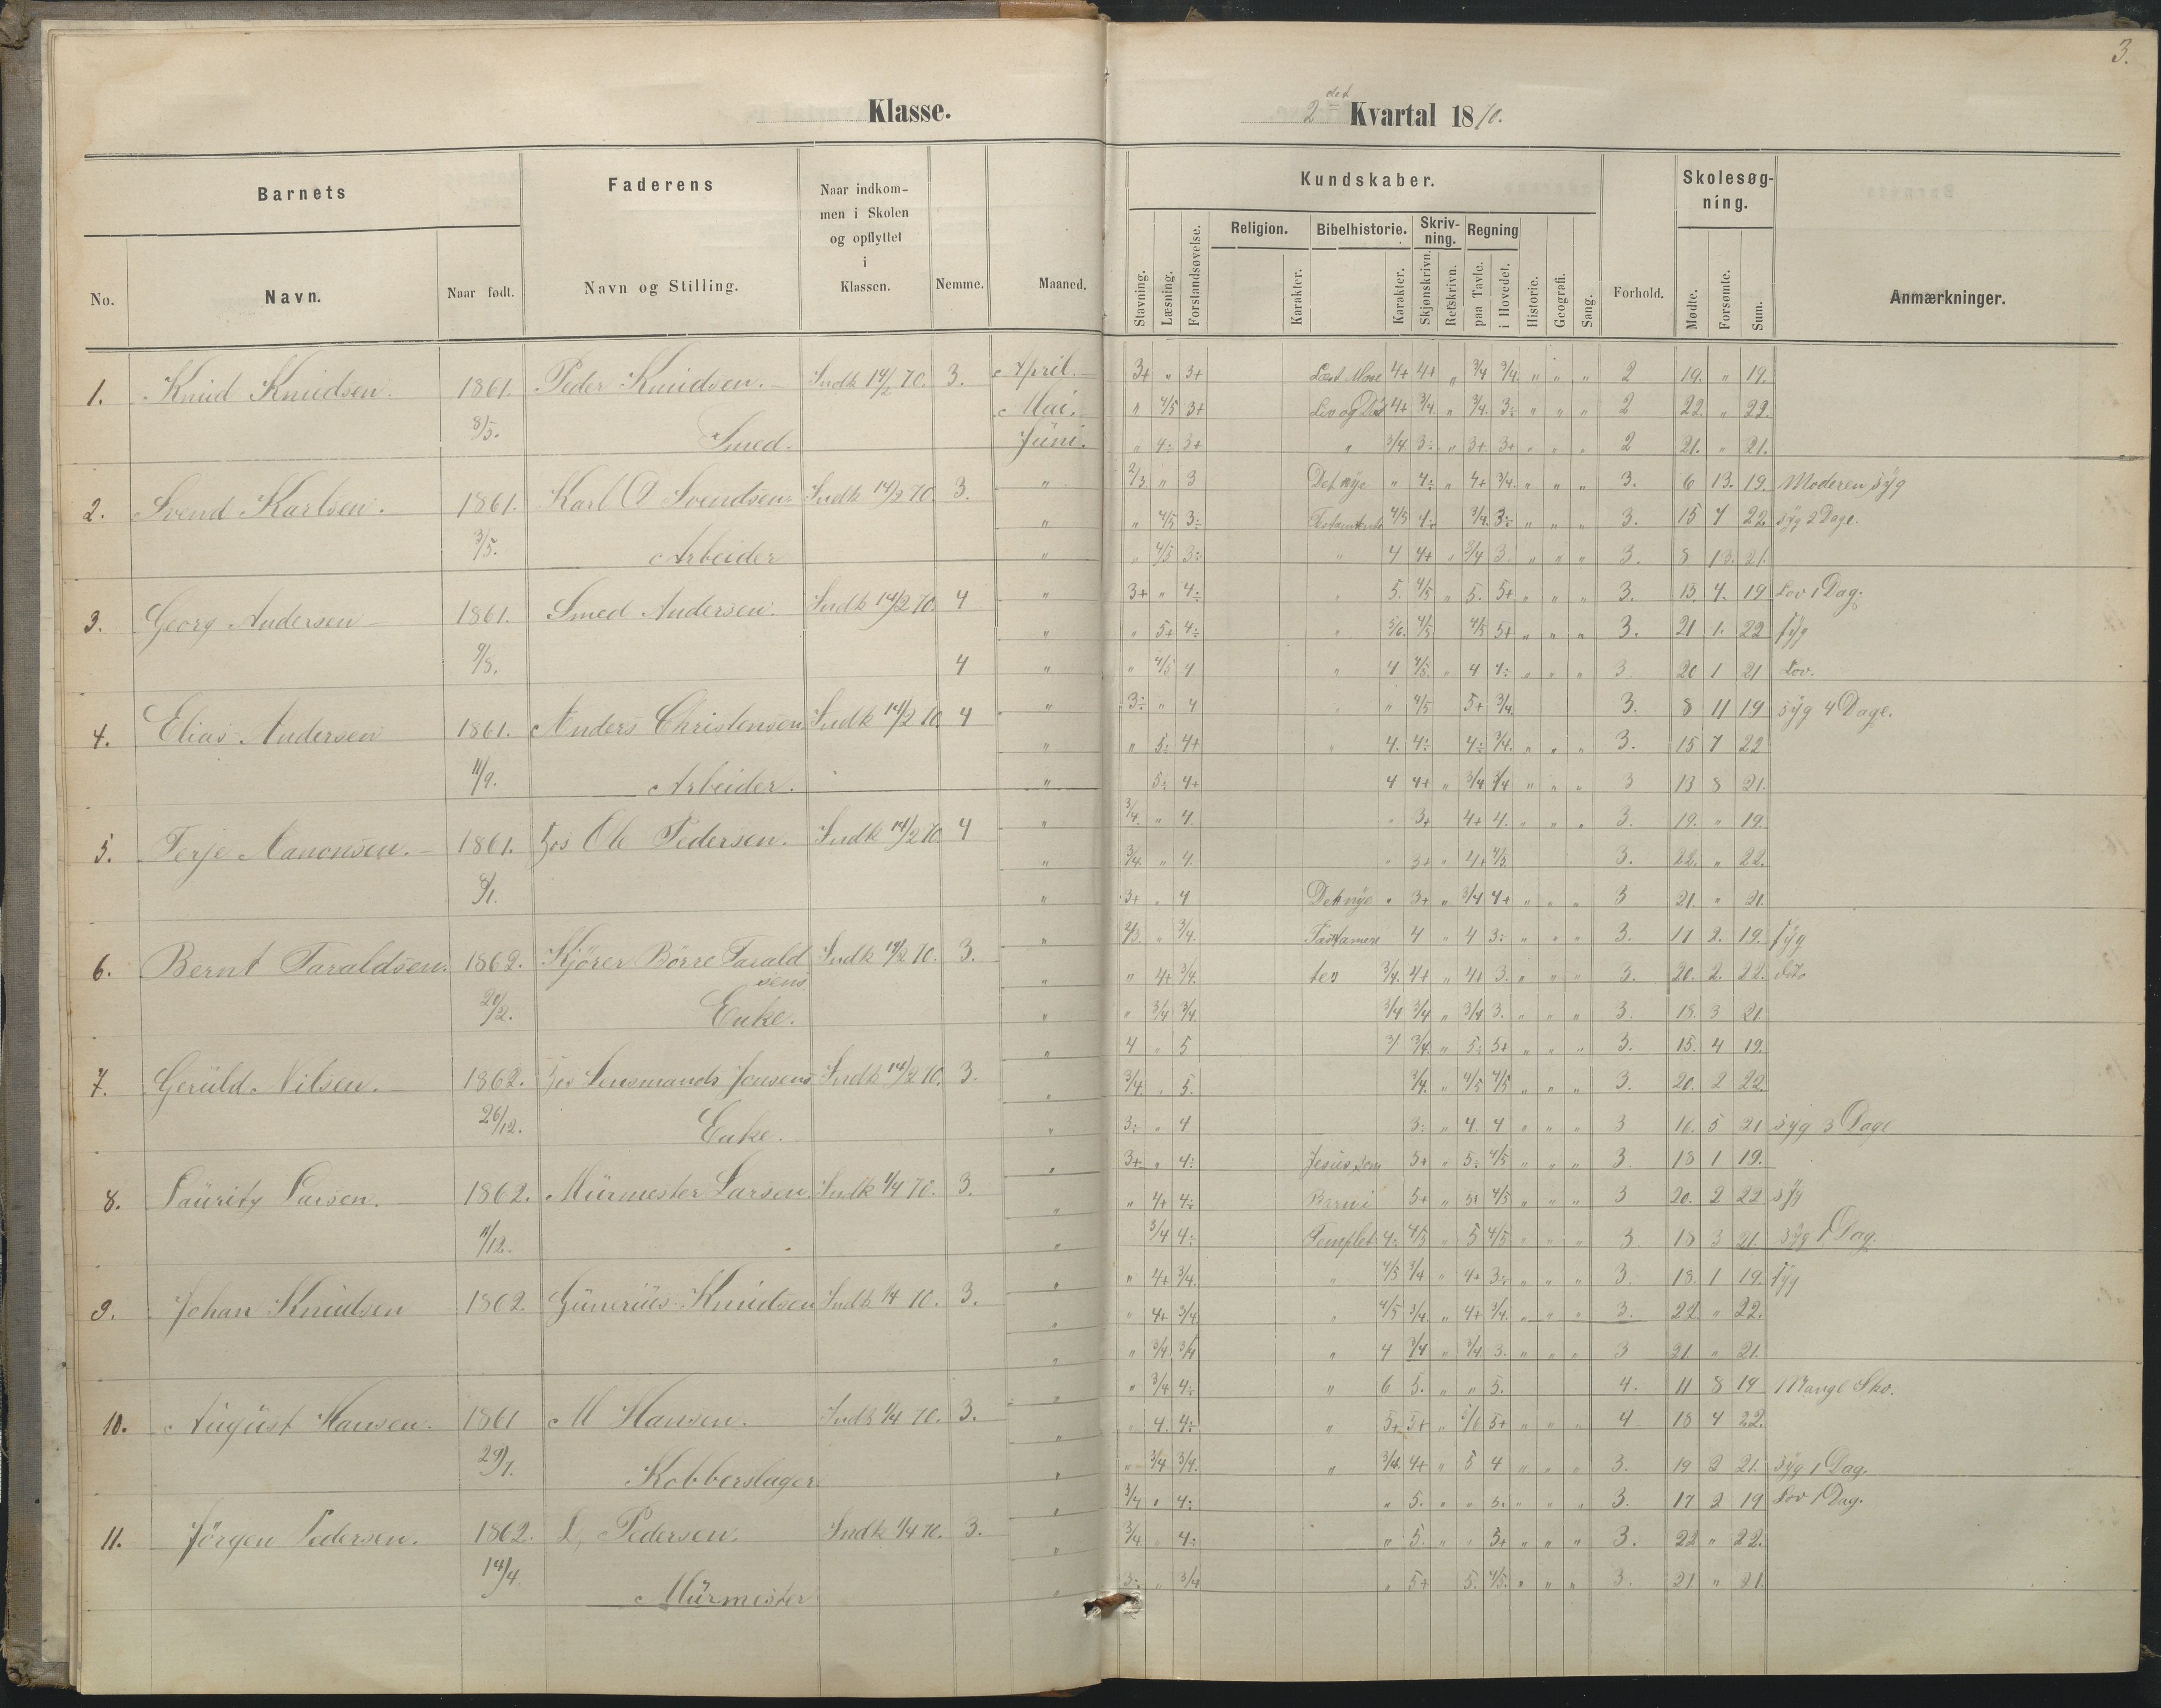 3.
Klasse.
2det Kvartal 1870.
Barnets
Faderens
Naar indkom-
men i Skolen
og opflyttet
i
Klassen.
Nemme.
Maaned.
No.
Navn.
Naar født.
Navn og Stilling.
Kundskaber.
Stavning. Læsning. Forstandsøvelse. Religion. Karakter. Bibelhistorie. Karakter.
Skriv-
ning.
Skjønskrivn. Retskrivn.
Regning
paa Tavle. i Hovedet. Historie. Geografi. Sang.
Forhold.
Skolesøg-
ning.
Mødte. Forsømte. Sum.
Anmærkninger.
1. Knud Knudsen. 1861. Peder Knudsen. Indk 14/2 70. 3. April. 3+ " 3+ 4+ 4+ " 3/4 3/4. " " " 2 19. " 19.
Mai. " 4/5 3+ 4+ 3/4. " 3/4. 3÷ " " " 2 22. " 22.
8/5. Smed. Juni. " 4÷ 3+ " 3/4 3÷ " 3+ 3+ " " " 2 21. " 21.
2. Svend Karlsen. 1861. Karl O Svendsen Indk 14/2 70. 3. " 2/3 " 3 Det nye " 4÷ " 4+ 3/4. " " " 3. 6 13. 19. Moderen syg
" " 4/5 3÷ 4/5 4÷ 3/4. 3÷ " " " 3. 15 7 22. syg 2 Dage.
3/5. Arbeider " " 4/5 3÷ " 4 4+ " 3/4 3. " " " 3. 8 13. 21.
3. Georg Andersen 1861. Smed Andersen. Indk 14/2 70. 4 " 3+ " 4÷ " 5. 4/5 " 5. 5+ " " " 3. 15. 4. 19 Lov 1 Dag.
" " 5+ 4÷ " 5/6. 4/5 4/5 5+ " " " 3. 21 1. 22 syg
9/8. 4 " " 4/5 4 " 4 4/5. " 4 4÷ " " " 3 20 1 21 Lov.
4. Elias Andersen 1861. Anders Christensen Indk 14/2 70. 4 " 3÷ " 4 " 4/5 5+ 3/4. 3. 8 11 19 syg 4 Dage.
" " 5÷ 4+ " 4. 4÷ 4÷ 3/4. " " " 3. 15 7 22
11/9. Arbeider. " 5÷ 4+ 4 4+ " 3/4 3/4 " " " 3 13 8 21.
5. Terje Aanonsen. 1861. hos Ole Pedersen. Indk 14/2 70. 4 " 3/4. " 4. " 3+ 4+ 4. " " " 3. 19. " 19.
" 3/4. " 4. " 3+ " 4+ 4/5. 3. 22. " 22.
8/1. " 3+ " 4 Det nye " 3+ " 3/4 4+ " " " 3 21. " 21.
6. Bernt Taraldsen. 1862. Kjörer Börre Tarald Indk 14/2 70. 3. " 2/3. " 3/4. 4 " 4 3÷ " " " 3. 17 2. 19. syg
sens " " 4+ 3/4. ter 3/4. 4+ " 4+ 3. " " " 3. 20. 2. 22. dito
20/2. Enke. " " 3/4 3/4. 3/4 3/4 " 3/4 3. " " " 3. 18. 3 21.
7. Gerüld Nilsen. 1862. hos Lensmands Jensens Indk 14/2 70. 3. " 4 " 5 3/4. " 5÷ 5+ " " " 3. 15. 4 19.
" 3/4. " 5. 3/4. " 4/5 4/5 " " " 3. 20. 2 22.
26/12. Enke. " 3÷ " 4 3÷ " 4. 4 " " " 3 16. 5 21 syg 3 Dage
8. Lauritz Larsen. 1862. Mürmester Larsen. Indk 1/4 70. 3. " 3+ " 4÷ Jesus som 5+ " 5÷ 4/5 " " " 3. 18 1 19.
" " 4+ 4÷ Barn i 5+ " 5+ 4/5 " " " 3 20. 2 22 syg
11/12. " 3/4 4÷ Templet 4÷ 4/5 " 5 4/5 " " " 3 18 3 21. syg 1 Dag.
9. Johan Knudsen 1862. Günerius Knudsen Indk 1/4 70. 3. " " 4+ 3/4. " 4/5 3/4 " 4+ 3÷ " " " 3. 18. 1 19. syg
" " 4+ 3/4 " 4/5 3/4. " 4+ 3/4. " " " 3. 22. " 22.
" " 3/4 3/4 " 4 3/4 " 3/4 3. " " " 3 21 " 21.
10. August Hansen. 1861 M Hansen. Indk 1/4 70. 3. " " 3/4 4÷ " 6 5. " " 5. 4. 11 8 19 Mangl Sko.
" " 4. 4÷ " 5+ 5+ " 5/6 5+ " " " 4 18 4 22.
29/1. Kobberslager. " " 3/4 3/4. " 3/4. 4+ " 5 4 " " " 3. 19 2 21. syg 1 Dag.
11. Jörgen Pedersen. 1862. L, Pedersen. Indk 1/4 70. 3. " 3/4 " 4÷ " 5. " " 5. " " " 3. 17 2 19 Lov 1 Dag.
" 3/4. " 4÷ " 5. " " 5+ " " " 3. 22 " 22.
14/4. Mürmester " 3÷ " 3/4 " 5+ 5. 4/5. " " " 3. 21. " 21.